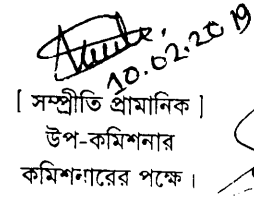 10.02.2019
[ সম্প্রীতি প্রামানিক ]
উপ-কমিশনার
কমিশনারের পক্ষে ।